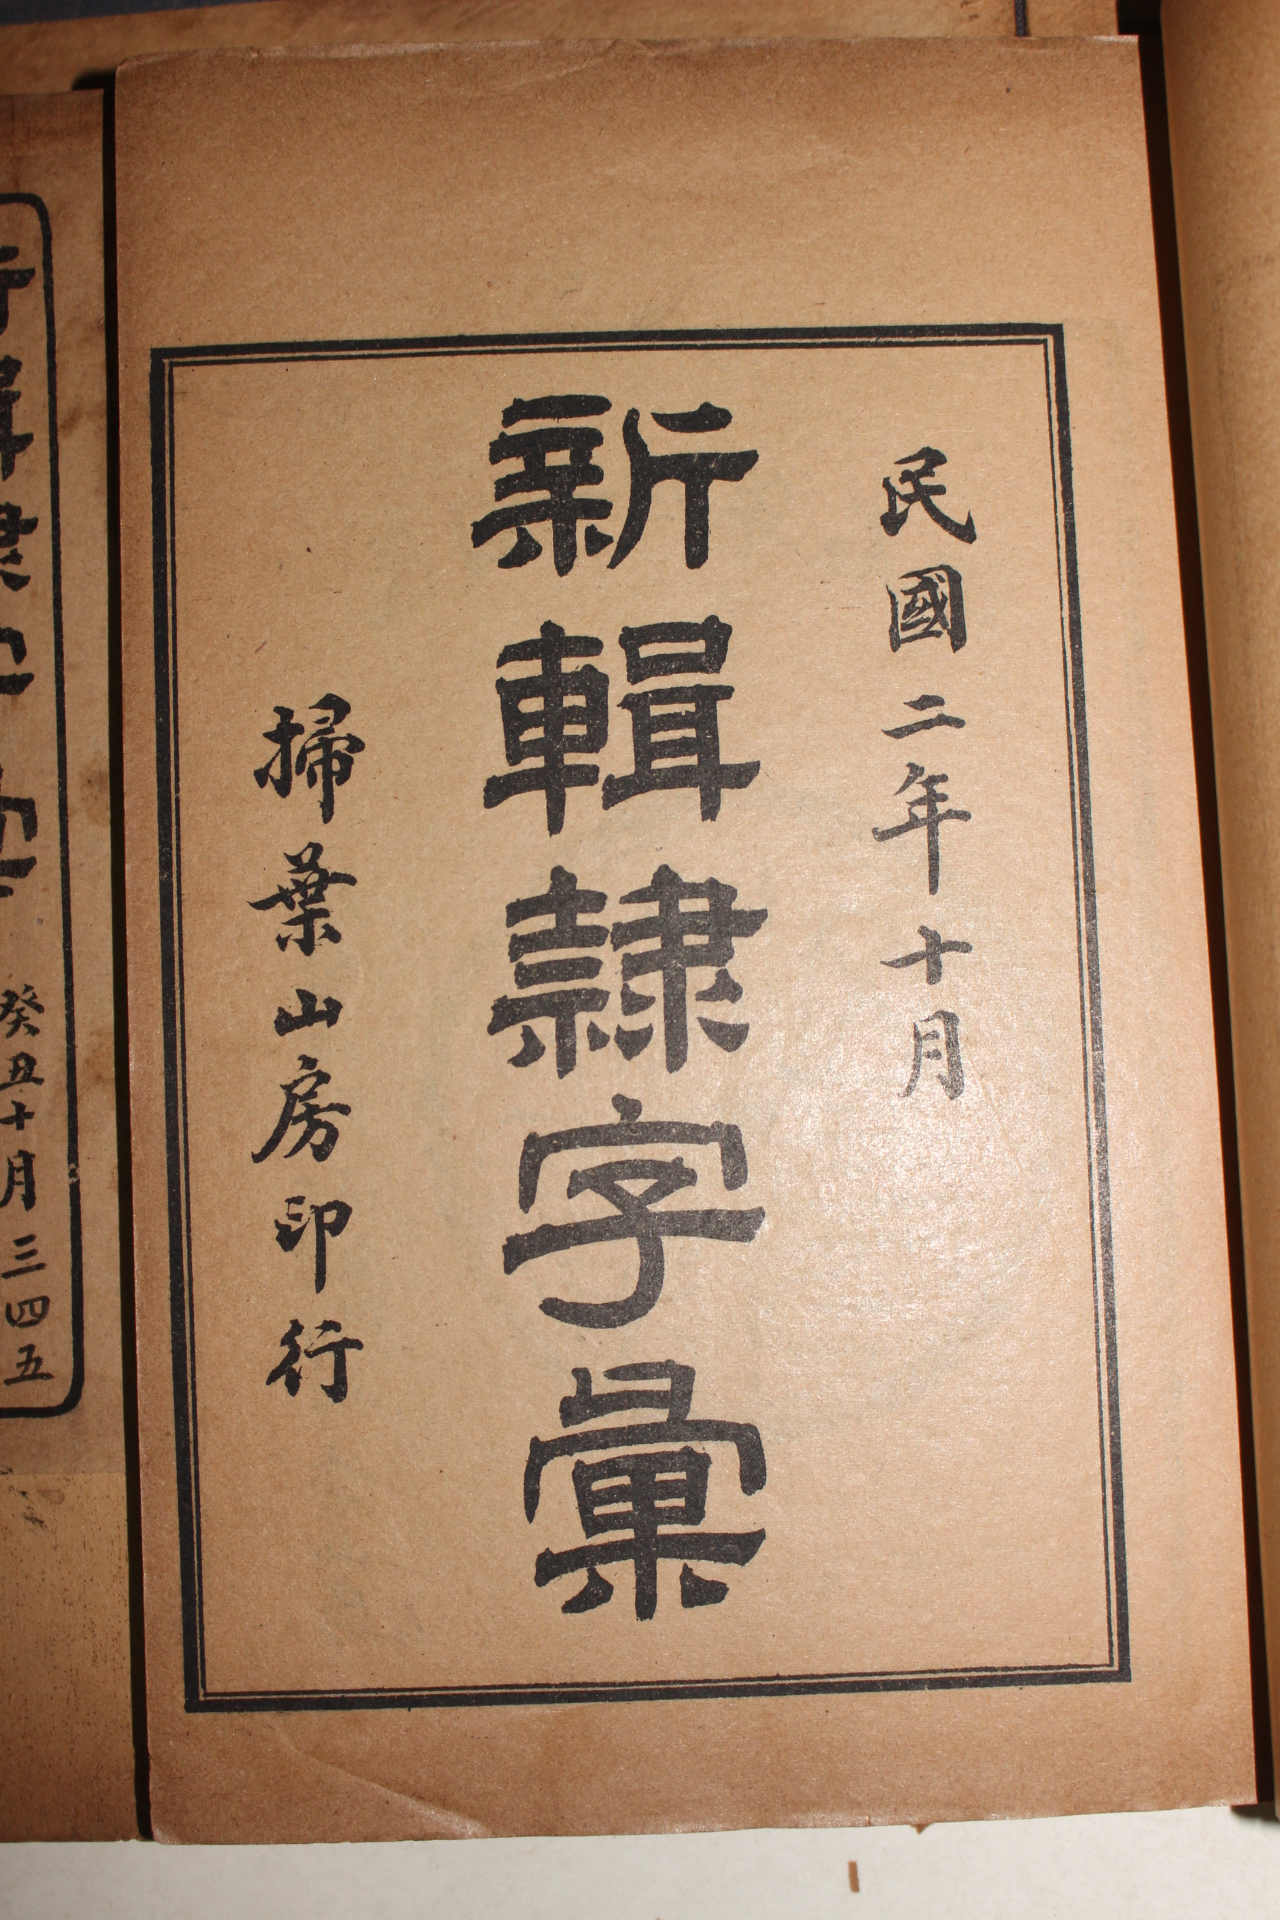 民國二年十月
新輯隸字彙
掃葉山房印行
癸丑十月 三四五